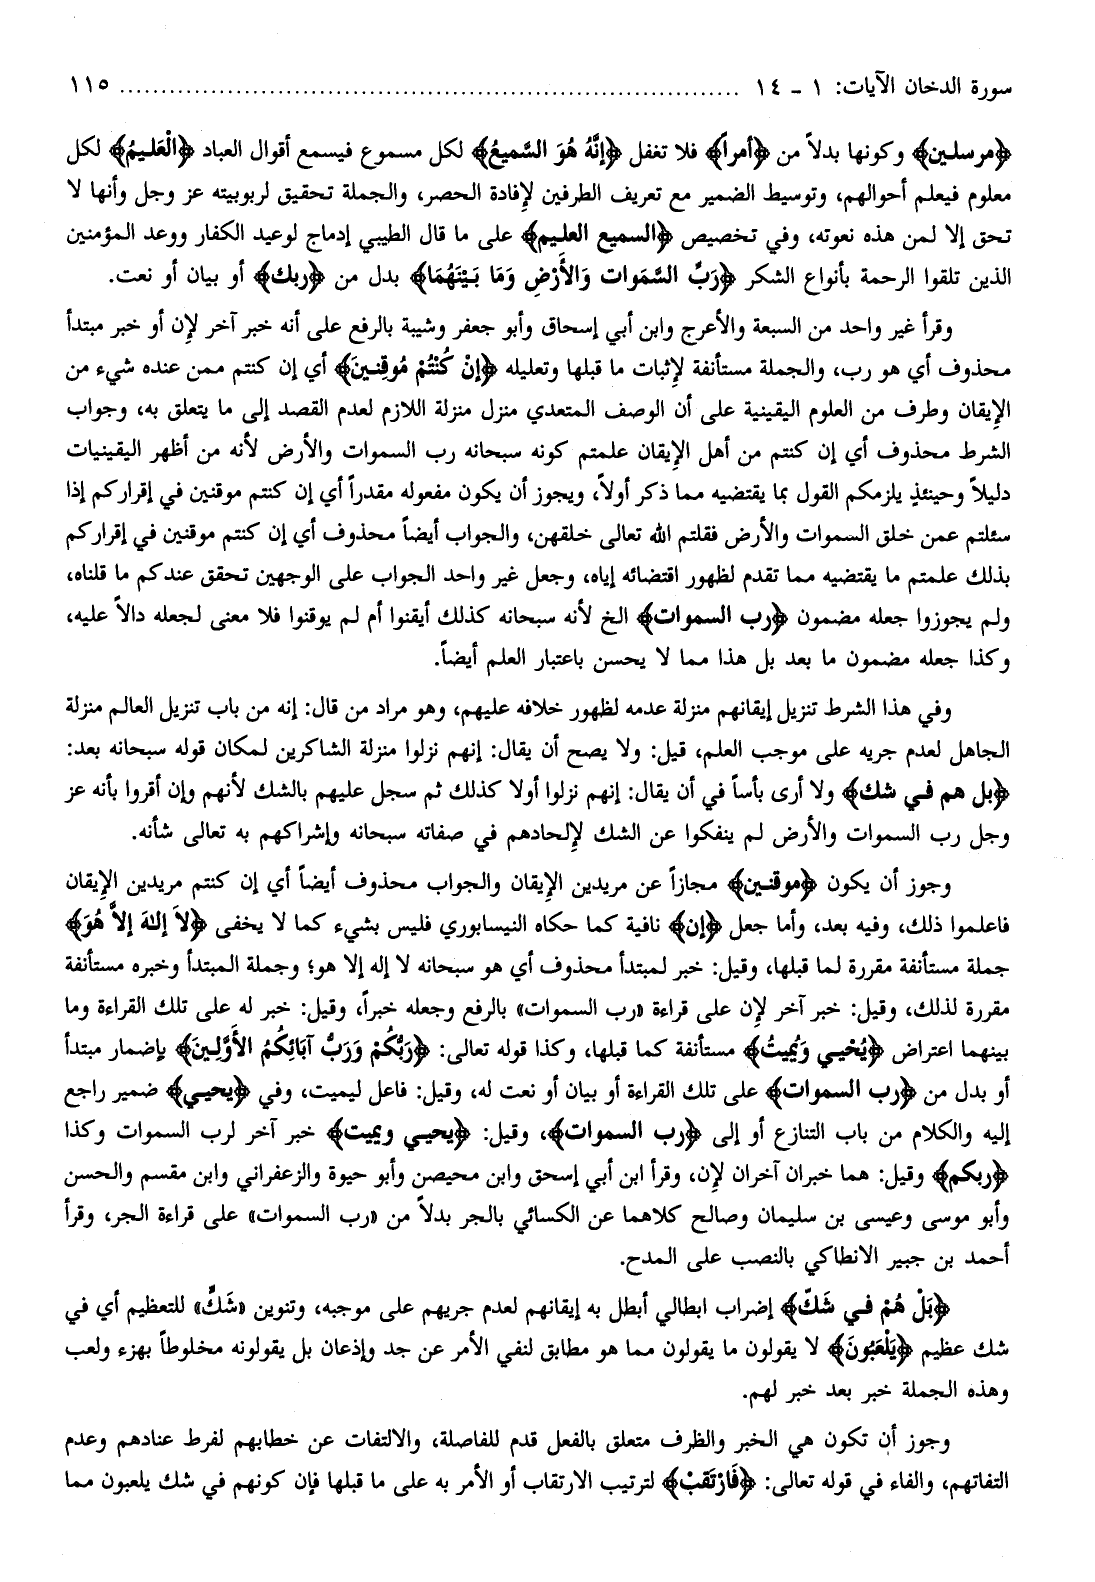 سورة الدخان الآيات: ١ ـ ١٤ ........................................................................... ١١٥
﴿مرسلين﴾ وكونها بدلاً من ﴿أمراً﴾ فلا تغفل ﴿إنَّهُ هُوَ السَّميعُ﴾ لكل مسموع فيسمع أقوال العباد ﴿الْعَليمُ﴾ لكل
معلوم فيعلم أحوالهم، وتوسيط الضمير مع تعريف الطرفين لإفادة الحصر، والجملة تحقيق لربوبيته عز وجل وأنها لا
تحق إلا لمن هذه نعوته، وفي تخصيص ﴿السميع العليم﴾ على ما قال الطيبي إدماج لوعيد الكفار ووعد المؤمنين
الذين تلقوا الرحمة بأنواع الشكر ﴿رَبِّ السَّموات وَالأَرْضِ وَمَا بَيْنَهُمَا﴾ بدل من ﴿ربك﴾ أو بيان أو نعت.
وقرأ غير واحد من السبعة والأعرج وابن أبي إسحاق وأبو جعفر وشيبة بالرفع على أنه خبر آخر لإن أو خبر مبتدأ
محذوف أي هو رب، والجملة مستأنفة لإثبات ما قبلها وتعليله ﴿إنْ كُنْتُمْ مُوقِنينَ﴾ أي إن كنتم ممن عنده شيء من
الإيقان وطرف من العلوم اليقينية على أن الوصف المتعدي منزل منزلة اللازم لعدم القصد إلى ما يتعلق به، وجواب
الشرط محذوف أي إن كنتم من أهل الإيقان علمتم كونه سبحانه رب السموات والأرض لأنه من أظهر اليقينيات
دليلاً وحينئذٍ يلزمكم القول بما يقتضيه مما ذكر أولاً، ويجوز أن يكون مفعوله مقدراً أي إن كنتم موقنين في إقراركم إذا
سئلتم عمن خلق السموات والأرض فقلتم الله تعالى خلقهن، والجواب أيضاً محذوف أي إن كنتم موقنين في إقراركم
بذلك علمتم ما يقتضيه مما تقدم لظهور اقتضائه إياه، وجعل غير واحد الجواب على الوجهين تحقق عندكم ما قلناه،
ولم يجوزوا جعله مضمون ﴿رب السموات﴾ الخ لأنه سبحانه كذلك أيقنوا أم لم يوقنوا فلا معنى لجعله دالاً عليه،
وكذا جعله مضمون ما بعد بل هذا مما لا يحسن باعتبار العلم أيضاً.
وفي هذا الشرط تنزيل إيقانهم منزلة عدمه لظهور خلافه عليهم، وهو مراد من قال: إنه من باب تنزيل العالم منزلة
الجاهل لعدم جريه على موجب العلم، قيل: ولا يصح أن يقال: إنهم نزلوا منزلة الشاكرين لمكان قوله سبحانه بعد:
﴿بل هم في شك﴾ ولا أرى بأساً في أن يقال: إنهم نزلوا أولا كذلك ثم سجل عليهم بالشك لأنهم وإن أقروا بأنه عز
وجل رب السموات والأرض لم ينفكوا عن الشك لإلحادهم في صفاته سبحانه وإشراكهم به تعالى شأنه.
وجوز أن يكون ﴿موقنين﴾ مجازاً عن مريدين الإيقان والجواب محذوف أيضاً أي إن كنتم مريدين الإيقان
فاعلموا ذلك، وفيه بعد، وأما جعل ﴿إن﴾ نافية كما حكاه النيسابوري فليس بشيء كما لا يخفى ﴿لاَ إلَهَ إلاَّ هُوَ﴾
جملة مستأنفة مقررة لما قبلها، وقيل: خبر لمبتدأ محذوف أي هو سبحانه لا إله إلا هو؛ وجملة المبتدأ وخبره مستأنفة
مقررة لذلك، وقيل: خبر آخر لإن على قراءة «رب السموات» بالرفع وجعله خبراً، وقيل: خبر له على تلك القراءة وما
بينهما اعتراض ﴿يُحْيي وَيُميتُ﴾ مستأنفة كما قبلها، وكذا قوله تعالى: ﴿رَبُّكُمْ وَرَبُّ آبَائِكُمُ الأَوَّلينَ﴾ بإضمار مبتدأ
أو بدل من ﴿رب السموات﴾ على تلك القراءة أو بيان أو نعت له، وقيل: فاعل ليميت، وفي ﴿يحيي﴾ ضمير راجع
إليه والكلام من باب التنازع أو إلى ﴿رب السموات﴾، وقيل: ﴿يحيي ويميت﴾ خبر آخر لرب السموات وكذا
﴿ربكم﴾ وقيل: هما خبران آخران لإن، وقرأ ابن أبي إسحق وابن محيصن وأبو حيوة والزعفراني وابن مقسم والحسن
وأبو موسى وعيسى بن سليمان وصالح كلاهما عن الكسائي بالجر بدلاً من «رب السموات» على قراءة الجر، وقرأ
أحمد بن جبير الانطاكي بالنصب على المدح.
﴿بَلْ هُمْ في شَكّ﴾ إضراب ابطالي أبطل به إيقانهم لعدم جريهم على موجبه، وتنوين «شَكٍّ» للتعظيم أي في
شك عظيم ﴿يَلْعَبُونَ﴾ لا يقولون ما يقولون مما هو مطابق لنفي الأمر عن جد وإذعان بل يقولونه مخلوطاً بهزء ولعب
وهذه الجملة خبر بعد خبر لهم.
وجوز أن تكون هي الخبر والظرف متعلق بالفعل قدم للفاصلة، والالتفات عن خطابهم لفرط عنادهم وعدم
التفاتهم، والفاء في قوله تعالى: ﴿فَارْتَقبْ﴾ لترتيب الارتقاب أو الأمر به على ما قبلها فإن كونهم في شك يلعبون مما